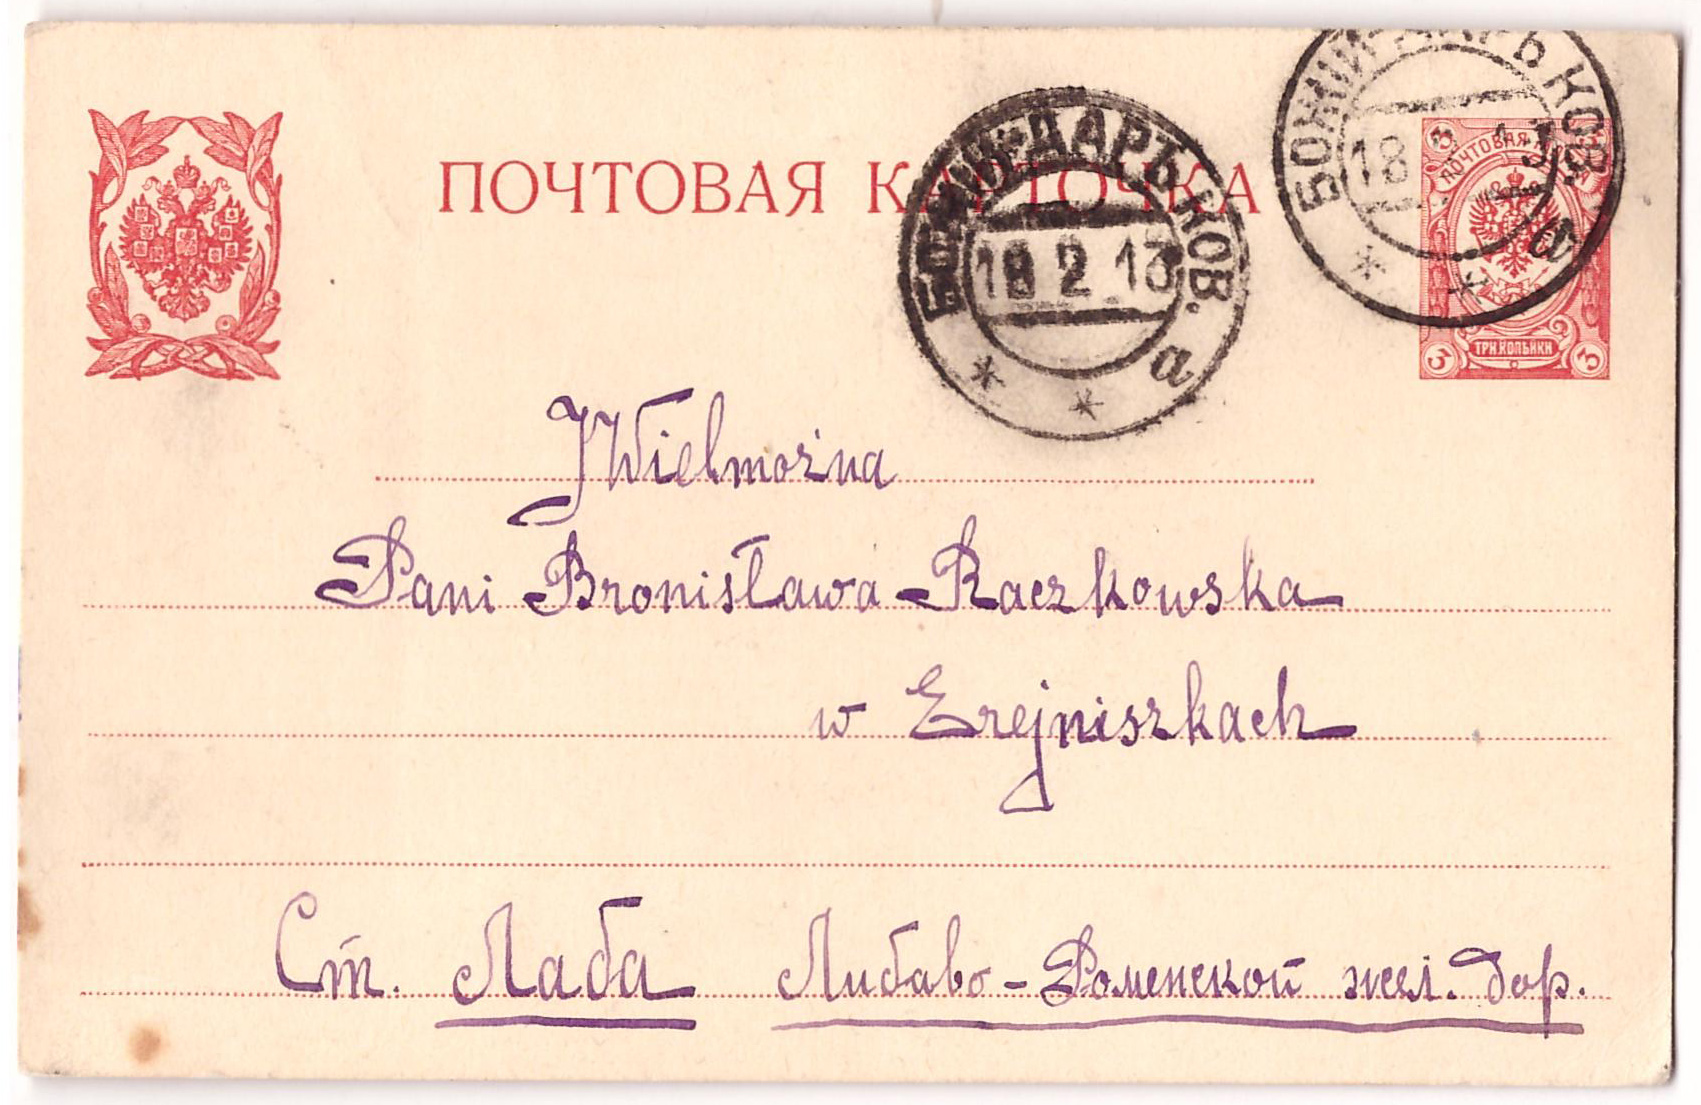 ПОЧТОВАЯ КАРТОЧКА
БОЖІЙ-ДАРЪ КОВ. а
18 2 13
БОЖІЙ-ДАРЪ КОВ. а
18 2 13
ПОЧТОВАЯ
3
ТРИ КОПѢЙКИ
3 3
JWielmożna
Pani Bronisława Raczkowska
w Erejniszkach
Ст. Лаба Либаво-Роменской жел. дор.